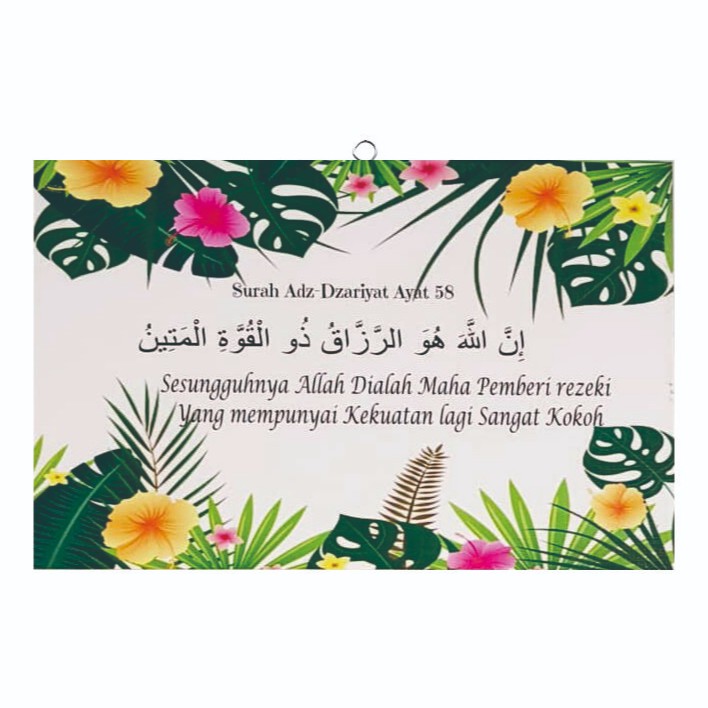 Surah Adz-Dzariyat Ayat 58
إِنَّ اللَّهَ هُوَ الرَّزَّاقُ ذُو الْقُوَّةِ الْمَتِينُ
Sesungguhnya Allah Dialah Maha Pemberi rezeki
Yang mempunyai Kekuatan lagi Sangat Kokoh